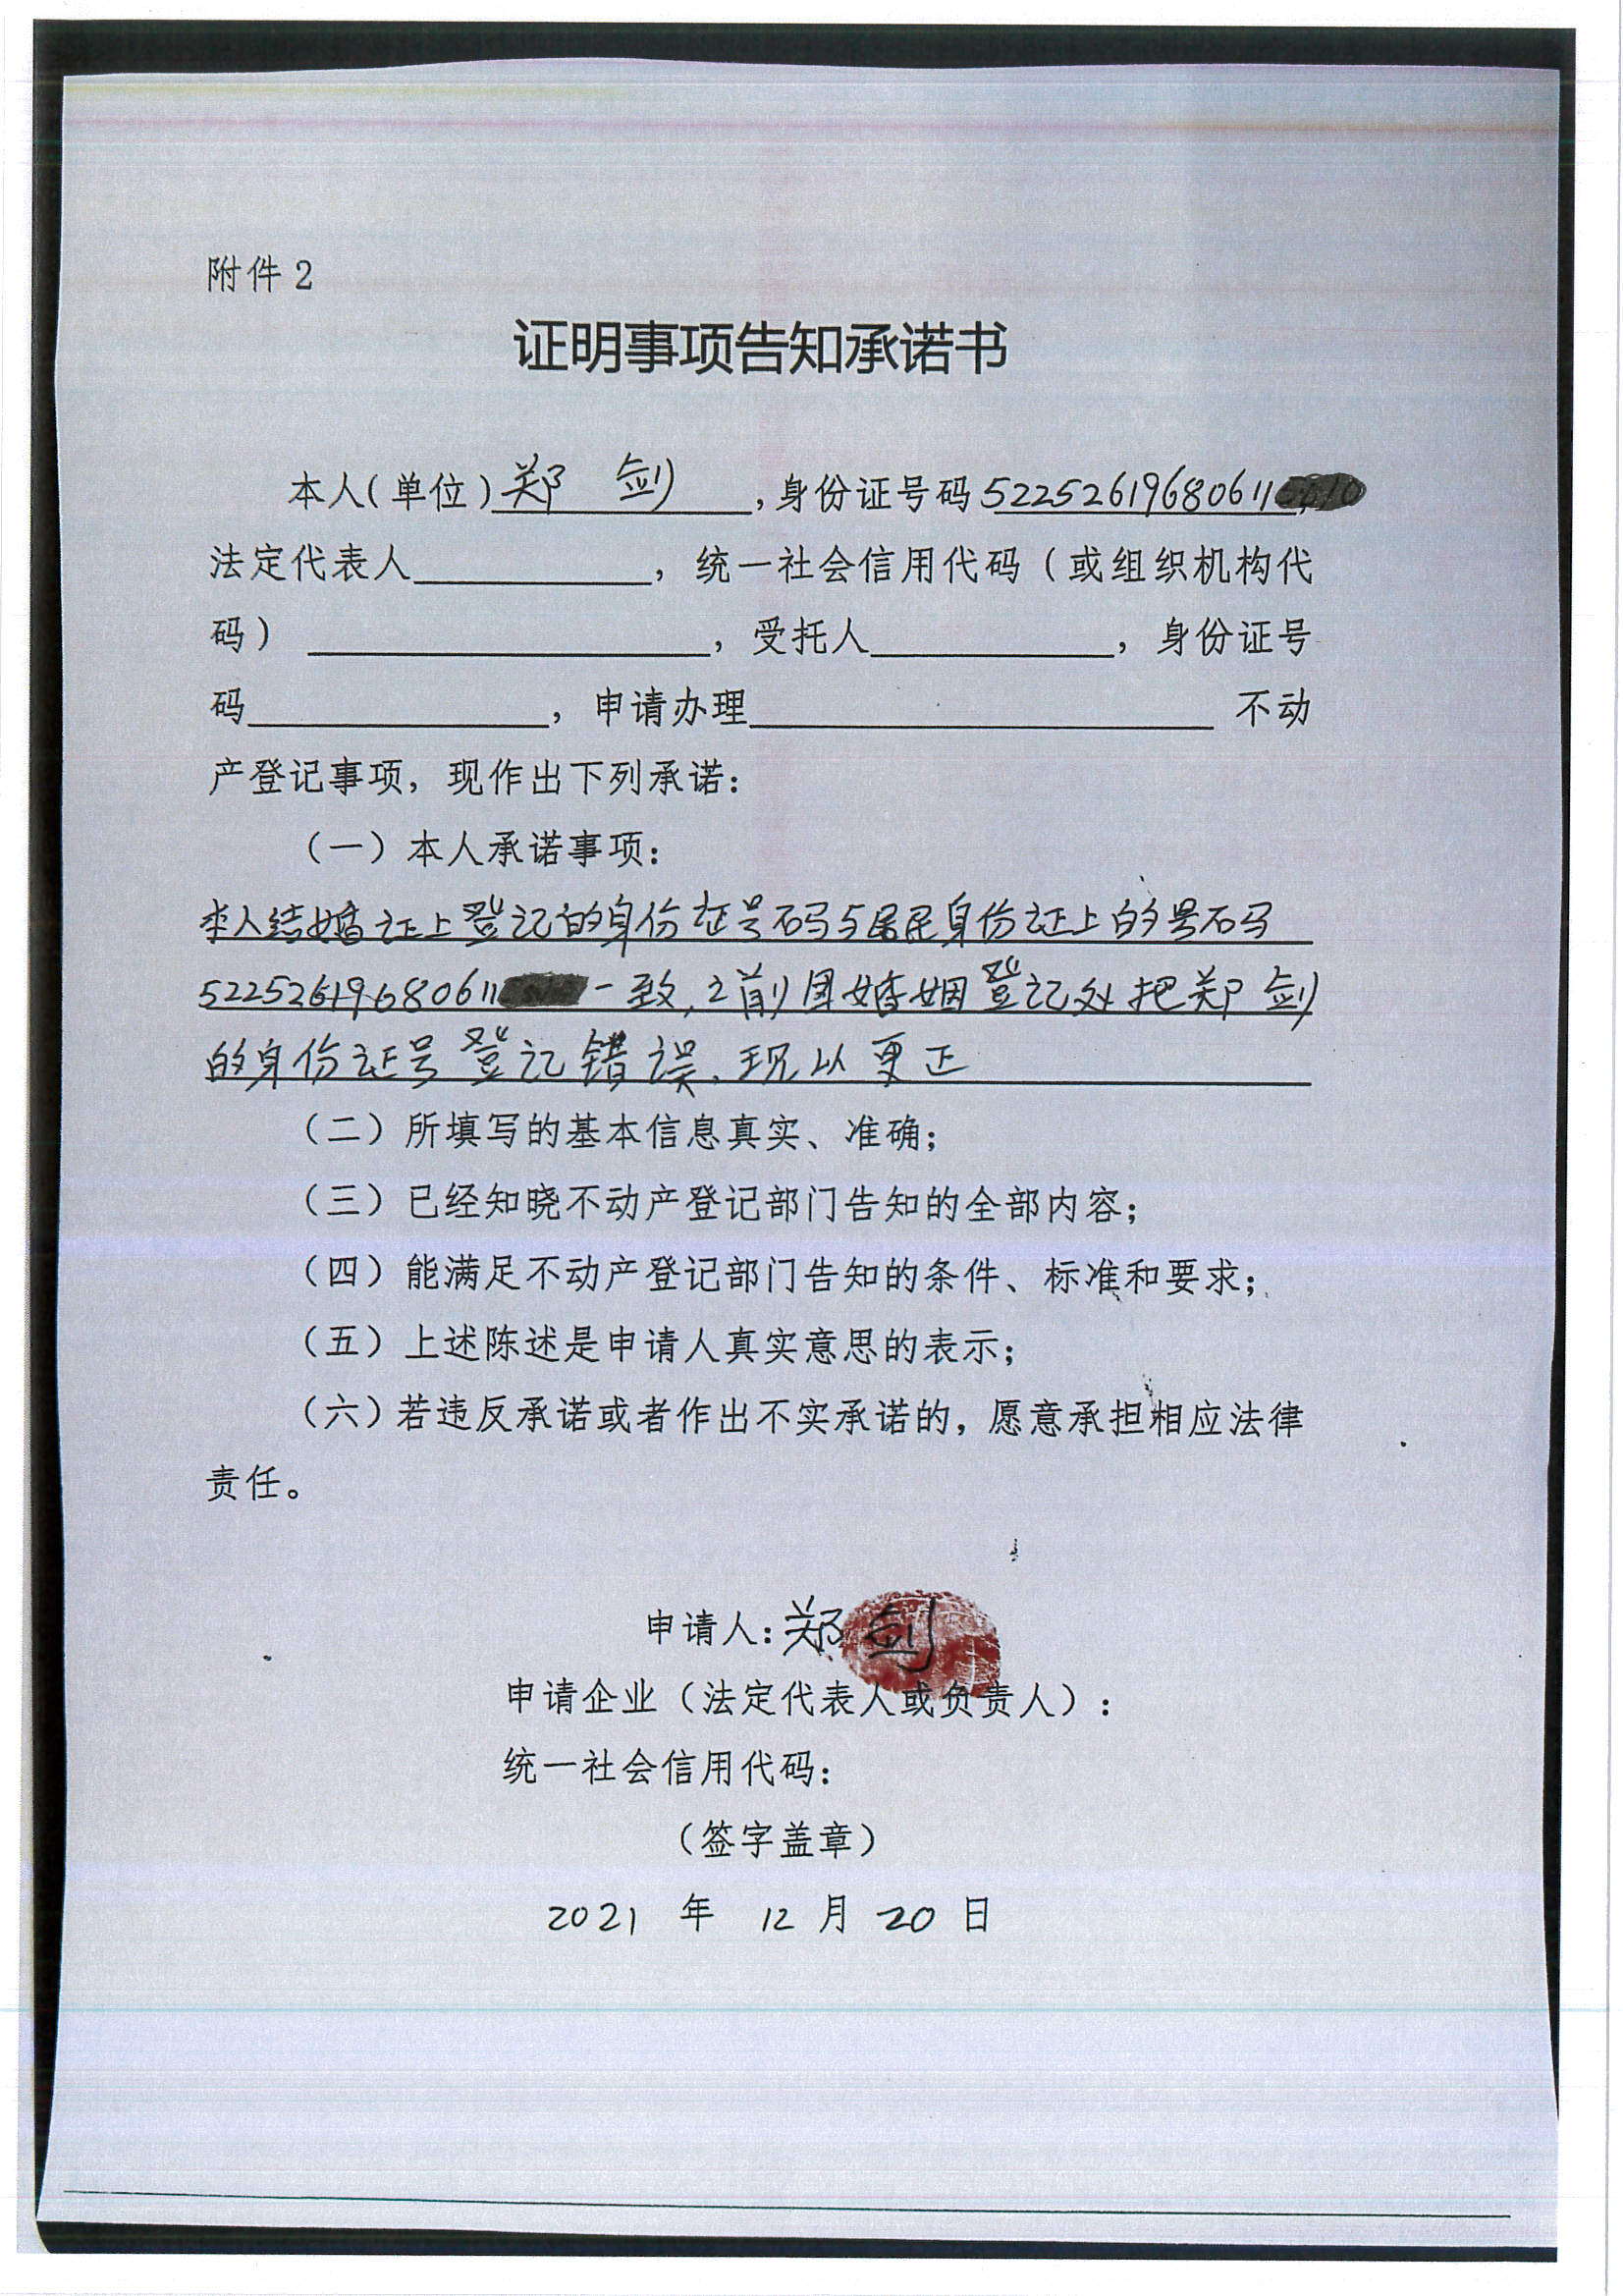 附件 2
证明事项告知承诺书
本人(单位)郑 剑,身份证号码 52252619680611
法定代表人，统一社会信用代码（或组织机构代
码），受托人，身份证号
码，申请办理 不动
产登记事项，现作出下列承诺：
（一）本人承诺事项：
本人结婚证上登记的身份证号码与居民身份证上的号码
52252619680611一致,之前因婚姻登记处把郑剑
的身份证号登记错误、现以更正
（二）所填写的基本信息真实、准确；
（三）已经知晓不动产登记部门告知的全部内容；
（四）能满足不动产登记部门告知的条件、标准和要求；
（五）上述陈述是申请人真实意思的表示；
（六）若违反承诺或者作出不实承诺的，愿意承担相应法律
责任。
申请人：郑剑
申请企业（法定代表人或负责人）：
统一社会信用代码：
（签字盖章）
2021 年 12 月 20 日